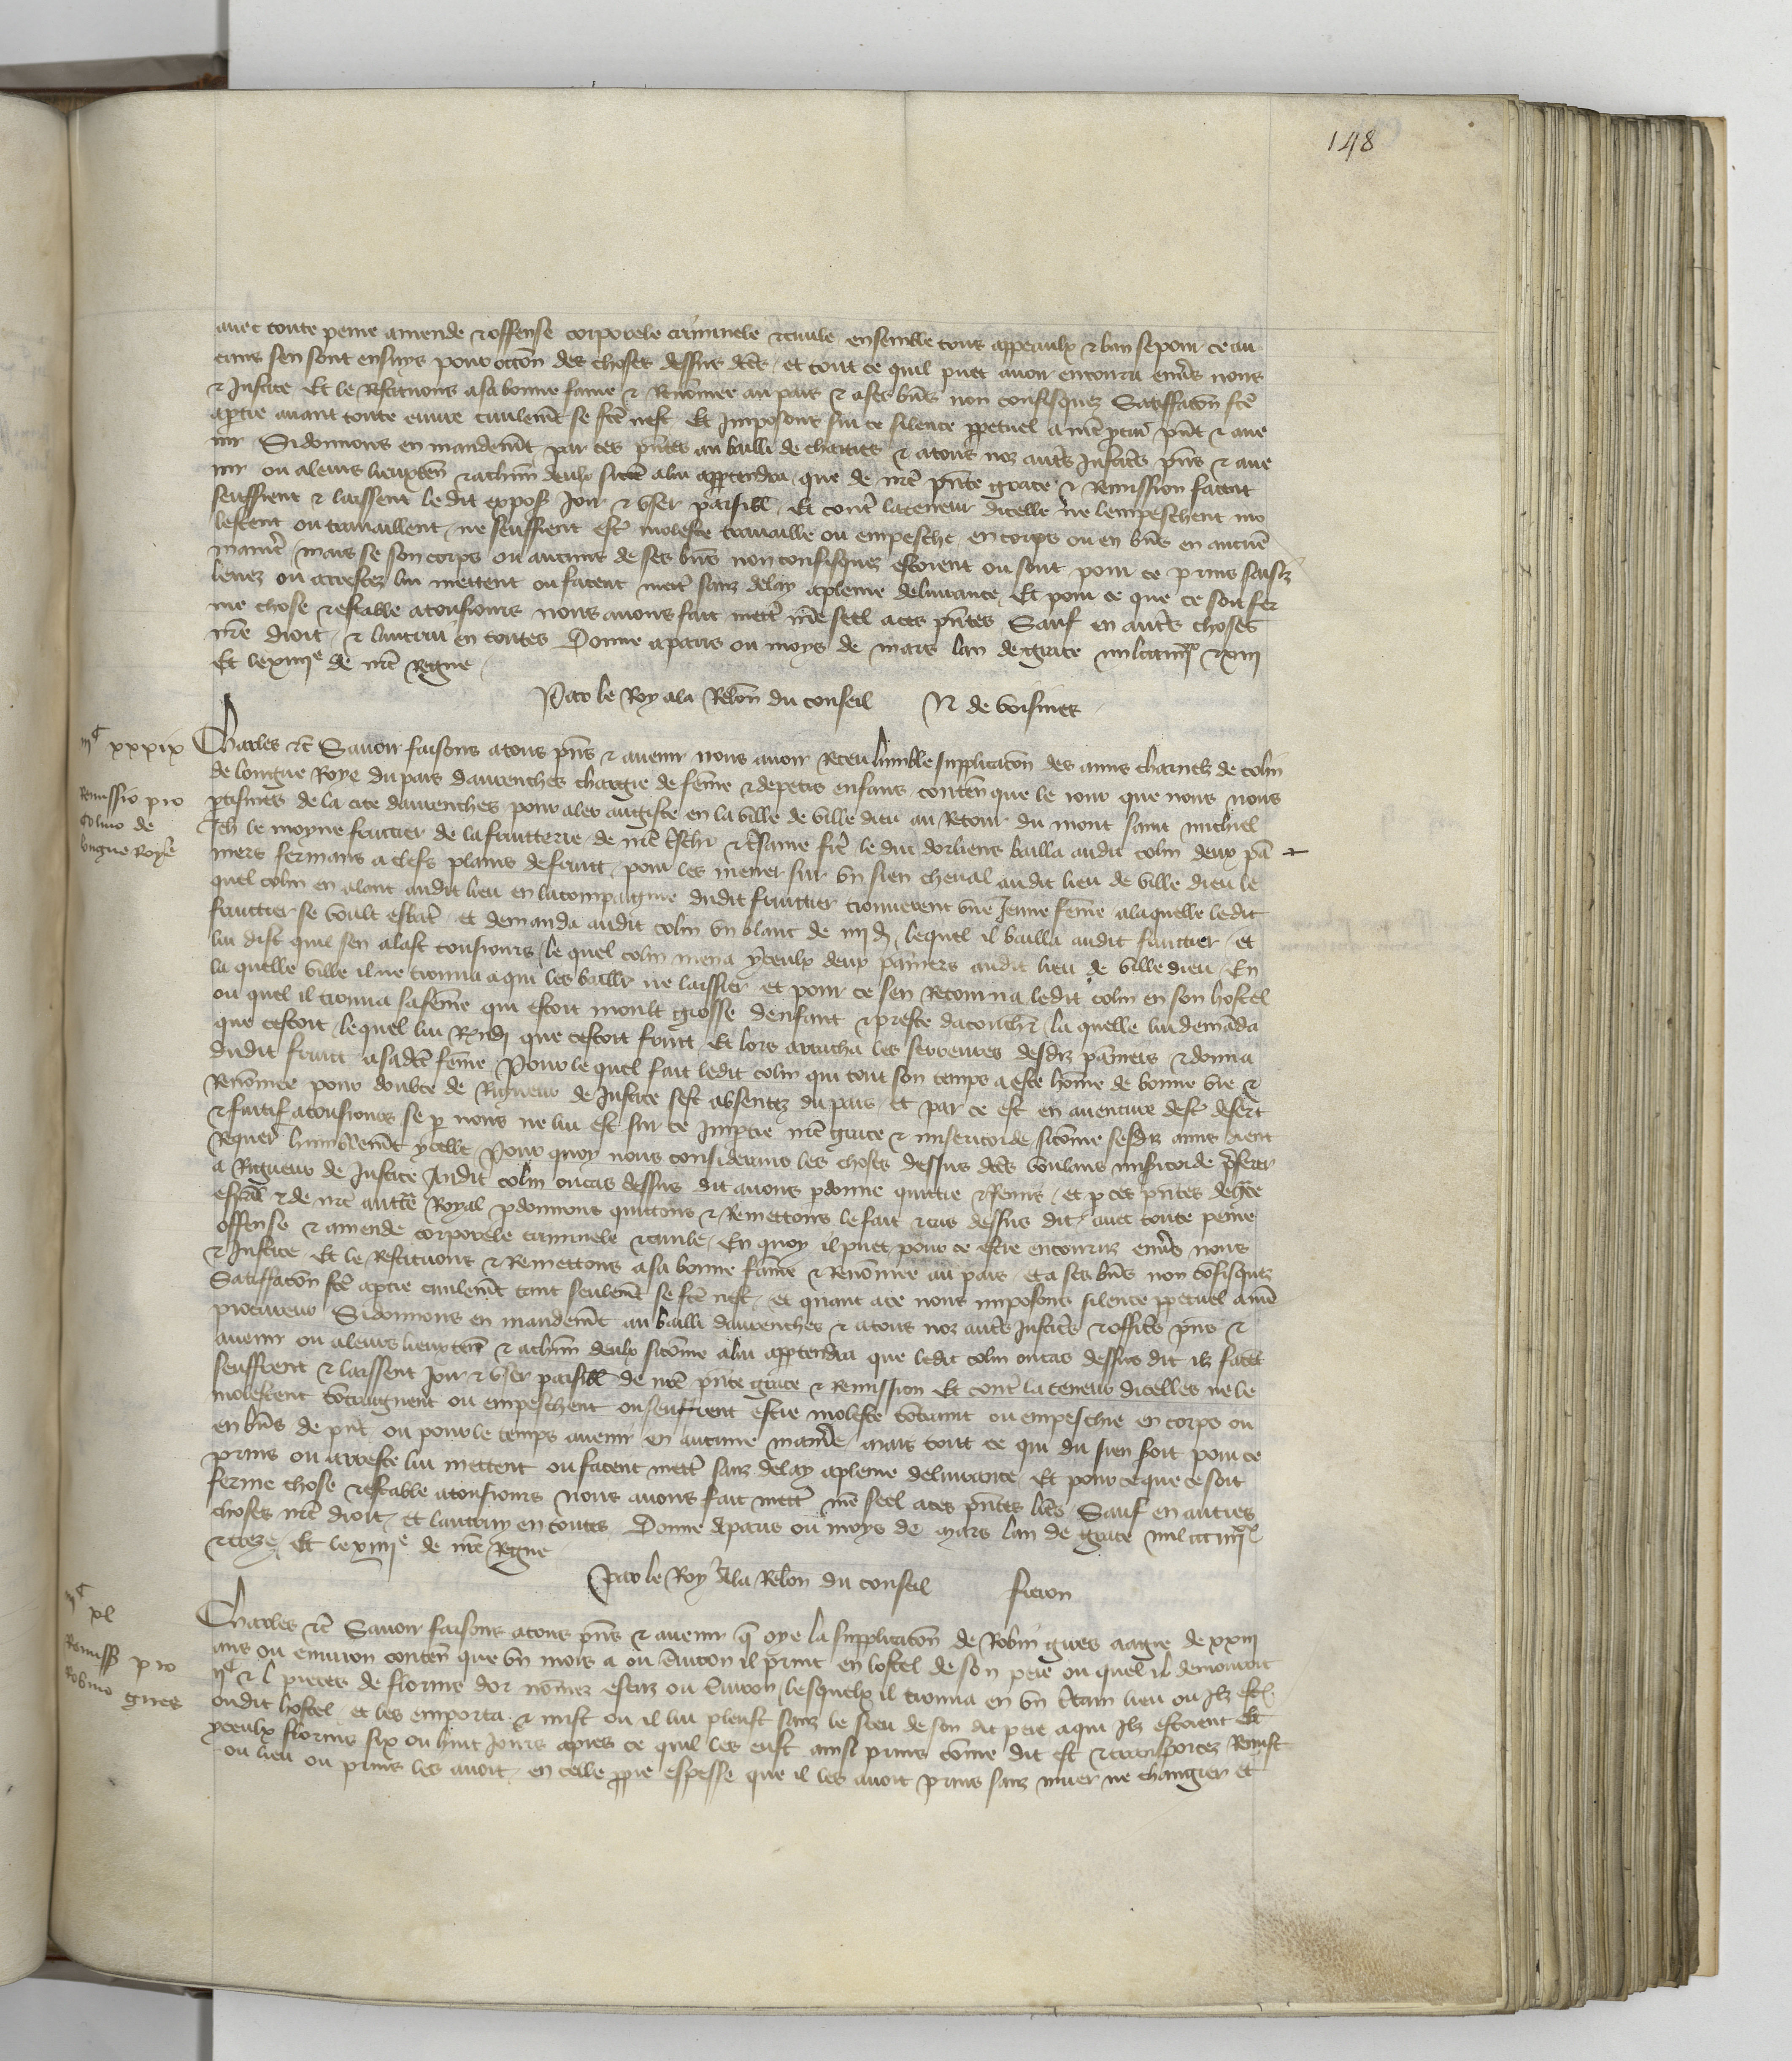 148
avec toute peine amende & offense corporele criminele & civile ensemble tous appeaulx & ban se pour ce au
cuns sen sont ensuys pour occõn des choses dessus dcẽs et tout ce quil puet avoir encouru enṽs nous
& Justice Et le Restituons a sa bonne fame & Renõmee au pais & a ses bñs non confisquez Satisffacõn fcẽ
a ptie avant toute euvre civilemẽt se fcẽ nest Et Imposons sur ce silence ppetuel a nrẽ pcur pñt & ave
nir Si donnons en mandemẽt par ces pñtes au bailli de & a tous noz autr̃s Justiciẽs pñs & ave
nir ou a leurs lieuxteñ & a chũn deulx sicõe a lui apptendra que de nrẽ pñte grace & Remission facent
seuffrent & laissent le dit expos Joir & user paisibl̃ Et contr̃ la teneur dicelle ne lempeschent mo
lestent ou travaillent ne seuffrent estr̃ moleste travaillie ou empeschie en corps ou en bñs en aucuẽ
manir̃e mais se son corps ou aucuns de ses bñs non confisquez estoient ou sont pour ce prins saisiz
levez ou arrestez lui mettent ou facent mettr̃ sanz delay a pleine delivrance Et pour ce que ce soit fer
me chose & estable a tousiours nous avons fait mettr̃ nrẽ seel a ces pñtes Sauf en autr̃s choses
nrẽ droit & lautrui en toutes Donne a paris ou moys de mars lan de grace mil ccc iiijxx & xiij
Et le xiiije de nrẽ Regne
Par le Roy a la Relõn du conseil N de voisines
ijc xxxix
Remissio pro
Colino de
longue Roye
Charles &c Savoir faisons a tous pñs & avenir nous avoir Receu lumble supplicacõn des amis charnelz de colin
de longue Roye du pais davrenches chargie de fem̃e & de petis enfans conteñ que le jour que nous nous
ptisimes de la cite davrenches pour aler au giste en la ville de ville dieu au Retour du mont saint michiel
Jeh̃ le moyne fruitier de la fruiterie de nrẽ tresch̃ & tresame fr̃e le duc dorliens bailla audit colin deux pã
niers fermans a clefs plains de fruit pour les mener sur un sien cheval audit lieu de ville dieu le
quel colin en alant audit lieu en la compaignie dudit fruitier trouverent une Jeune fem̃e a laquelle ledit
fruitier se voult esbatr̃ et demanda audit colin un blanc de iiij d lequel il bailla audit fruitier et
lui dist quil sen alast tousiours le quel colin mena yceulx deux pañiers audit lieu de ville dieu En
la quelle ville il ne trouva a qui les baillr̃ ne laissier et pour ce sen Retourna ledit colin en son hostel
ou quel il trouva sa fem̃e qui estoit moult grosse denfant & preste dacouchr̃ la quelle lui demãda
que cestoit lequel lui Rñdi que cestoit fruit Et lors arracha les serreures desdiz pañiers & donna
dudit fruit a sa dcẽ fem̃e Pour le quel fait ledit colin qui tout son temps a este hõme de bonne vie &
Renõmee pour doubte de Rigueur de Justice sest absentez du pais et par ce est en aventure destr̃ desert
& fuitif a tousiours se p nous ne lui est sur ce Impartie nrẽ grace & misericorde sicõme sesdiz amis dient
Requerãs humblemẽt ycelle Pour quoy nous considerans les choses dessus dcẽs voulans misericorde pferer
a Rigueur de Justice Audit colin ou cas dessus dit avons pdonne quittie & Remis et p ces pñtes de grace
espal & de nrẽ auctẽ Royal pdonnons quittons & Remettons le fait & cas dessus dit avec toute peine
offense & amende corporele criminele & civile En quoy il puet pour ce estre encouruz enṽs nous
& Justice Et le Restituons & Remettons a sa bonne fame & Renõmee au pais et a ses bñs non cõfisquez
Satisffacõn fcẽ a ptie civilemẽt tant seulemẽt se fcẽ nest et quant a ce nous imposons silence ppetuel a nrẽ
procureur Si donnons en mandemẽt au bailli davrenches & a tous noz autr̃s Justiciẽs & officiẽs pñs &
avenir ou a leurs lieuxteñ & a chũn deulx sicõme a lui apptendra que ledit colin ou cas dessus dit ilz facẽt
seuffrent & laissent Joir & user paisibl̃ de nrẽ pñte grace & Remission Et contr̃ la teneur dicelles ne le
molestent cõtraignent ou empeschent ou seuffrent estre moleste cõtraint ou empeschie en corps ou
en bñs de pñt ou pour le temps avenir en aucune manir̃e mais tout ce qui du sien soit pour ce
prins ou arreste lui mettent ou facent mettr̃ sanz delay a pleine delivrance Et pour ce que ce soit
ferme chose & estable a tousiours nous avons fait mettr̃ nrẽ seel a ces pñtes lrẽs Sauf en autres
choses nrẽ droit Et lautruy en toutes Donne a paris ou moys de mars lan de grace mil ccc iiijxx
& treze Et le xiiije de nrẽ Regne
Par le Roy a la Relõn du conseil freron
ijc
xl
Remiss pro
Robino gires
Charles &c Savoir faisons a tous pñs & avenir q̃ oye la supplicacõn de Robin gires aagie de xxiij
ans ou environ conteñ que un mois a ou environ il print en lostel de son pere ou quel il demouroit
ijc & l pieces de florins dor nõmez escuz ou environ lesquelx il trouva en un certain lieu ou ilz est
oudit hostel et les emporta & mist ou il lui pleust sanz le sceu de son dit pere a qui ilz estoient Et
yceulx florins six ou huit Jours apres ce quil les eust ainsi prins cõme dit est & transportez Remist
ou lieu ou prins les avoit en celle ppre espesse que il les avoit prins sanz muer ne changier et